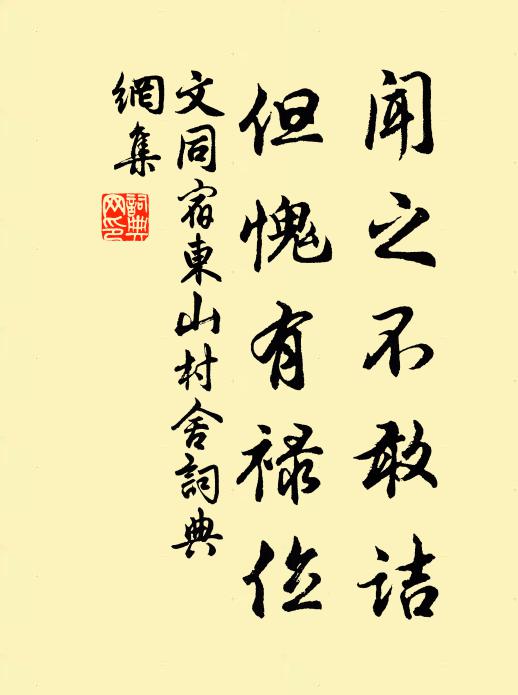 闻之不敢詰
但愧有禄位
文同宿東山村舍詞典
網集
詞典
网印